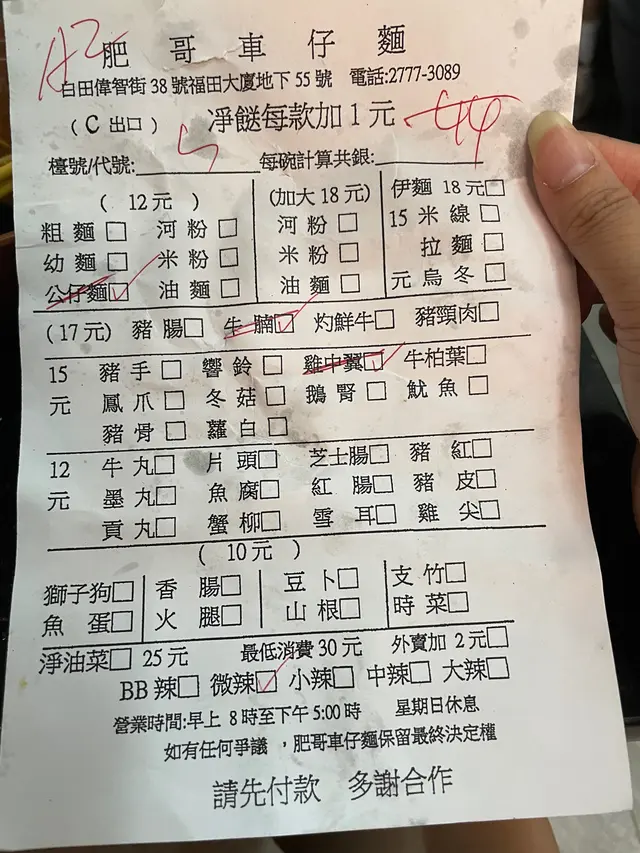 A2
肥哥車仔麵
白田偉智街 38 號福田大廈地下 55 號 電話:2777-3089
( C 出口 ) 凈餸每款加 1 元 44
檯號/代號:__________ 每碗計算共銀:__________
( 12 元 ) (加大 18 元) 伊麵 18 元□
粗麵 □ 河粉 □ 河粉 □ 15 米線 □
幼麵 □ 米粉 □ 米粉 □ 拉麵 □
公仔麵☑ 油麵 □ 油麵 □ 元 烏冬 □
(17 元) 豬腸□ 牛腩☑ 灼鮮牛□ 豬頸肉□
15 豬手 □ 響鈴 □ 雞中翼☑ 牛柏葉□
元 鳳爪 □ 冬菇 □ 鵝腎 □ 魷魚 □
豬骨 □ 蘿白 □
12 牛丸□ 片頭□ 芝士腸□ 豬紅□
元 墨丸□ 魚腐□ 紅腸□ 豬皮□
貢丸□ 蟹柳□ 雪耳□ 雞尖□
( 10 元 )
獅子狗□ 香腸□ 豆卜□ 支竹□
魚蛋□ 火腿□ 山根□ 時菜□
淨油菜□ 25 元 最低消費 30 元 外賣加 2 元□
BB 辣□ 微辣☑ 小辣□ 中辣□ 大辣□
營業時間:早上 8 時至下午 5:00 時 星期日休息
如有任何爭議 ，肥哥車仔麵保留最終決定權
請先付款 多謝合作